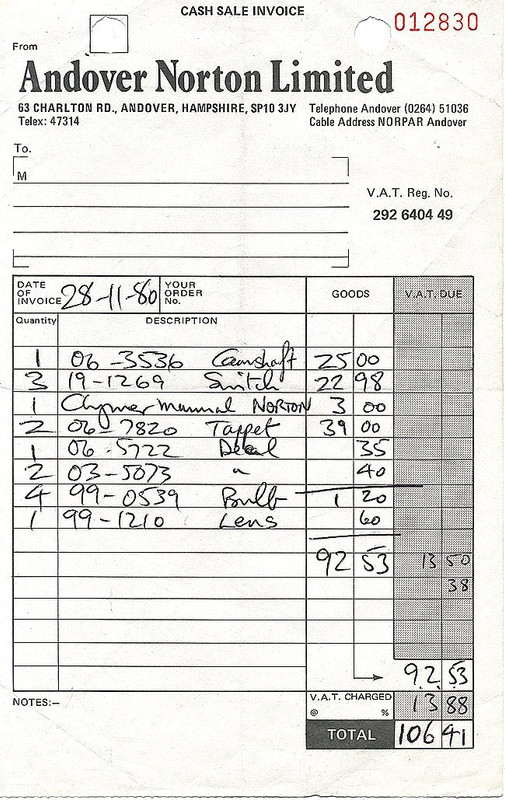 CASH SALE INVOICE
012830
From
Andover Norton Limited
63 CHARLTON RD., ANDOVER, HAMPSHIRE, SP10 3JY Telephone Andover (0264) 51036
Telex: 47314 Cable Address NORPAR Andover
To.
M
V.A.T. Reg. No.
292 6404 49
DATE OF INVOICE 28-11-80 YOUR ORDER No. GOODS V.A.T. DUE
Quantity DESCRIPTION
1 06-3536 Camshaft 25 00
3 19-1269 Switch 22 98
1 manual NORTON 3 00
2 06-7820 Tappet 39 00
1 06-5722 Decal 35
2 03-5073 " 40
4 99-0539 Bulb 1 20
1 99-1210 Lens 60
92 53 13 50
38
92 53
NOTES:– V.A.T. CHARGED @ % 13 88
TOTAL 106 41